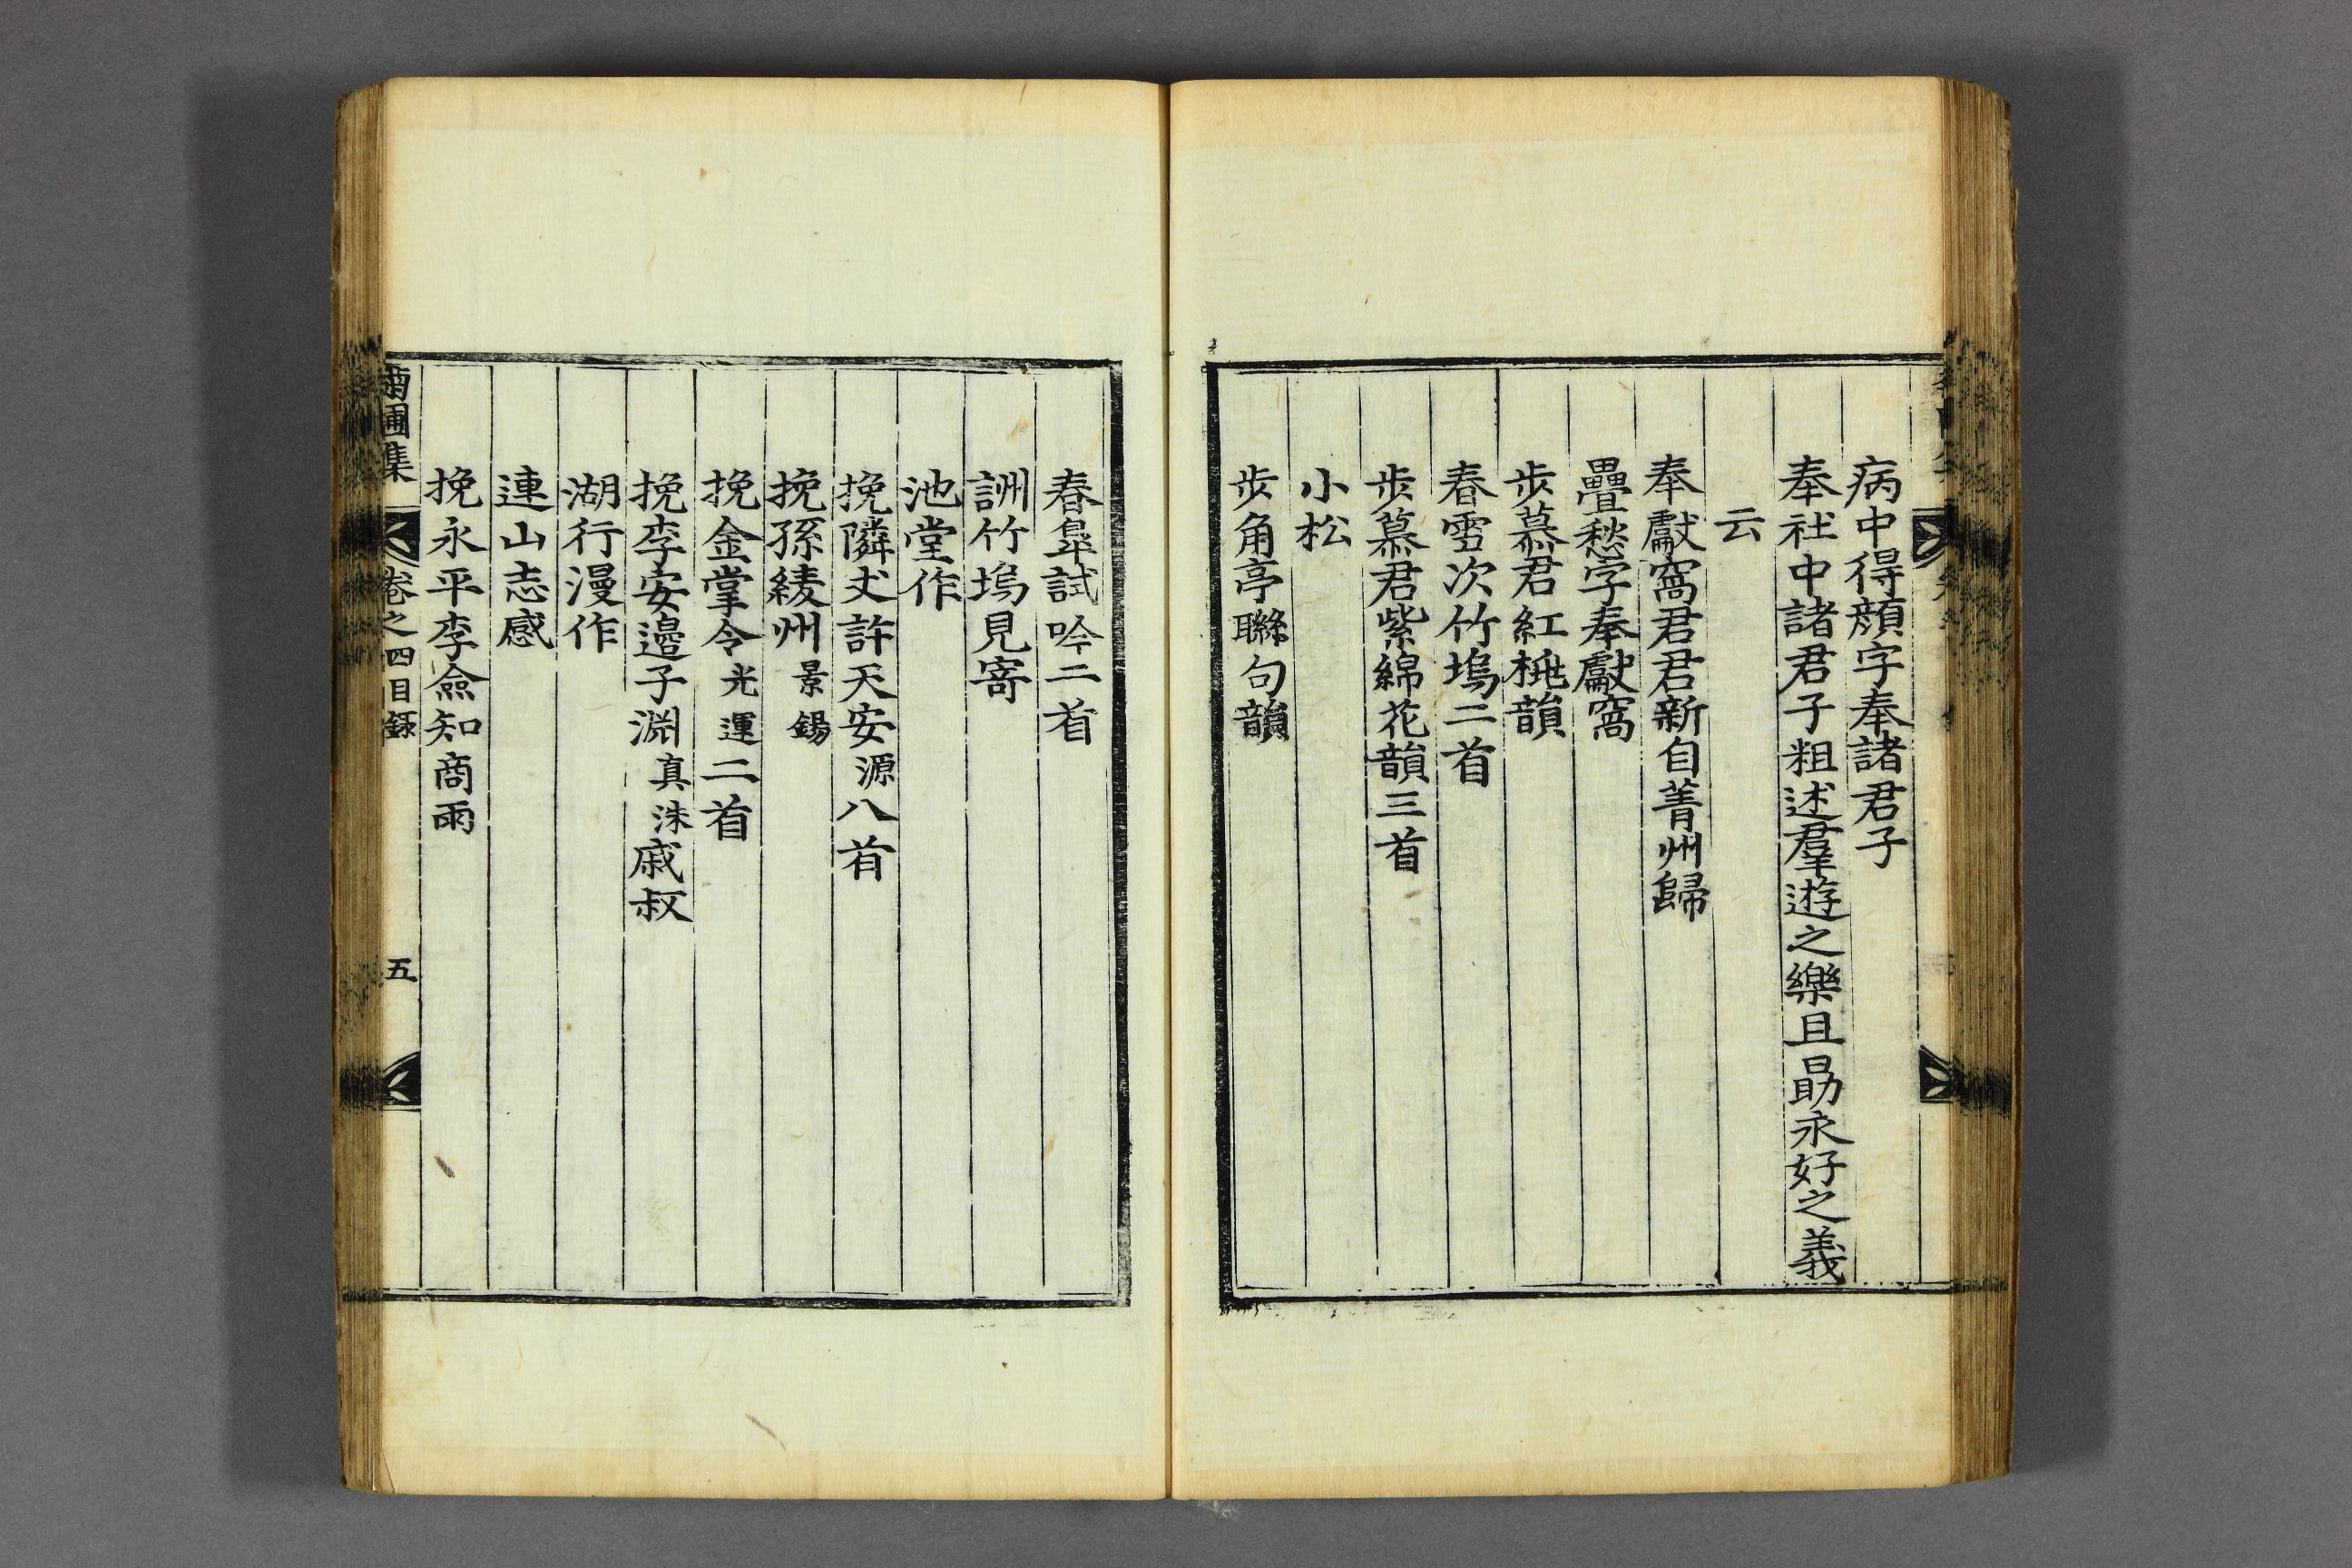 病中得顔字奉諸君子
奉社中諸君子粗述羣遊之樂且勗永好之義
云
奉獻窩君君新自菁州歸
疊愁字奉獻窩
步慕君紅桃韻
春雪次竹塢二首
步慕君紫綿花韻三首
小松
步角亭聯句韻
春皐試吟二首
詶竹塢見寄
池堂作
挽隣丈許天安源八首
挽孫綾州景錫
挽金掌令光運二首
挽李安邊子淵真洙戚叔
湖行漫作
連山志感
挽永平李僉知商雨
菊圃集 卷之四目錄 五